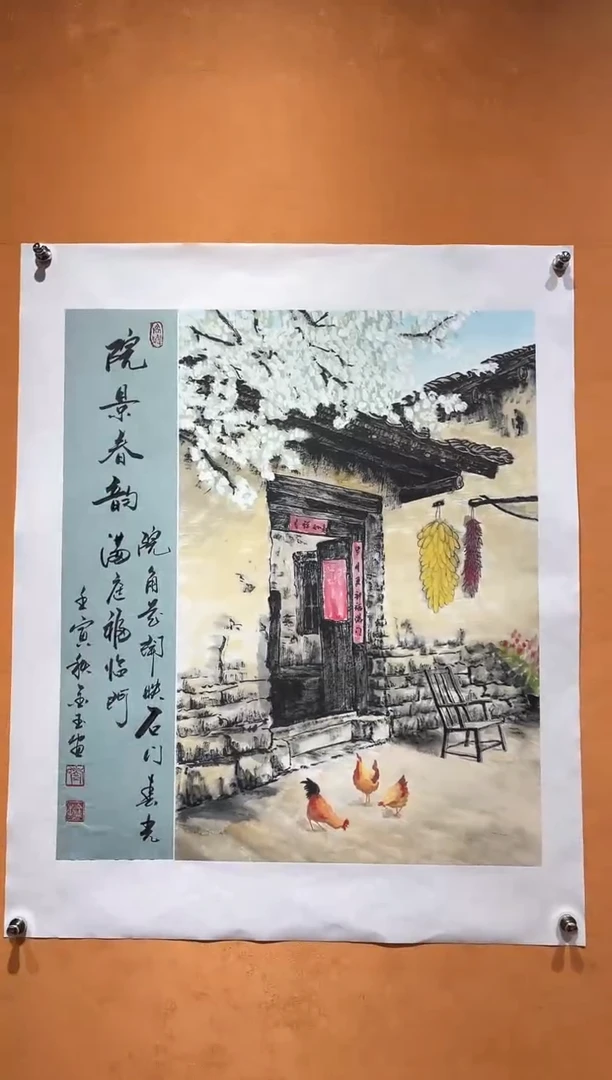 院景春韵
院角花映石门春光
满庭福临门
壬寅秋金玉